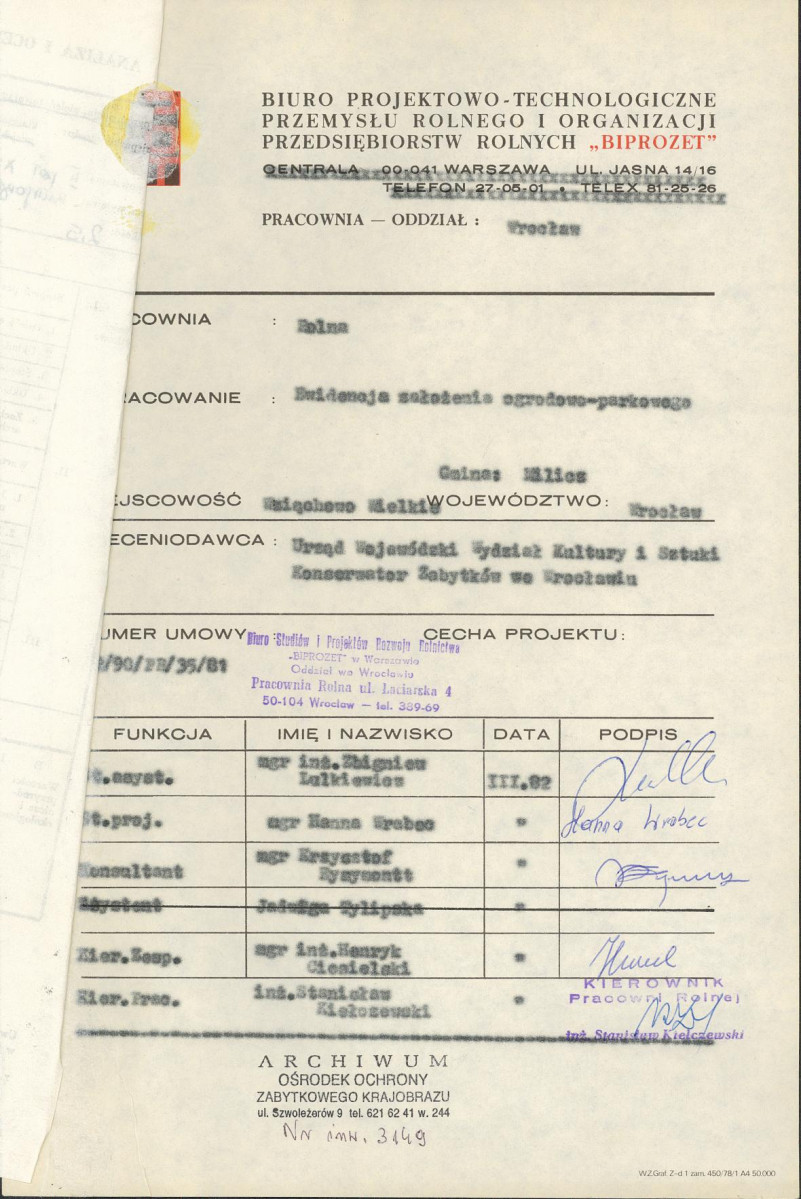 BIURO PROJEKTOWO-TECHNOLOGICZNE
PRZEMYSŁU ROLNEGO I ORGANIZACJI
PRZEDSIĘBIORSTW ROLNYCH „BIPROZET”
CENTRALA 00-041 WARSZAWA, UL. JASNA 14/16
TELEFON 27-05-01 • TELEX 81-25-26
PRACOWNIA — ODDZIAŁ : Wrocław
COWNIA : Rolna
RACOWANIE : Ewidencja założenia ogrodowo-parkowego
Gmina: Milicz
EJSCOWOŚĆ Wziąchowo Wielkie WOJEWÓDZTWO: Wrocław
ECENIODAWCA : Urząd Wojewódzki Wydział Kultury i Sztuki
Konserwator Zabytków we Wrocławiu
UMER UMOWY CECHA PROJEKTU:
/90/PR/35/81
Biuro Studiów i Projektów Rozwoju Rolnictwa
„BIPROZET” w Warszawie
Oddział we Wrocławiu
Pracownia Rolna ul. Łaciarska 4
50-104 Wrocław — tel. 389-69
FUNKCJA IMIĘ I NAZWISKO DATA PODPIS
St.asyst. mgr inż.Zbigniew
Lulkiewicz III.82
St.proj. mgr Hanna Wrabec " Hanna Wrabec
Konsultant mgr Krzysztof
Eysymontt "
Asystent Jadwiga Tylipska "
Kier.Zesp. mgr inż.Henryk
Ciesielski "
Kier.Prac. inż.Stanisław
Kiełczewski "
KIEROWNIK
Pracowni Rolnej
inż. Stanisław Kiełczewski
ARCHIWUM
OŚRODEK OCHRONY
ZABYTKOWEGO KRAJOBRAZU
ul. Szwoleżerów 9 tel. 621 62 41 w. 244
Nr inw. 3149
WZGraf. Z-d 1 zam. 450/78/1 A4 50.000